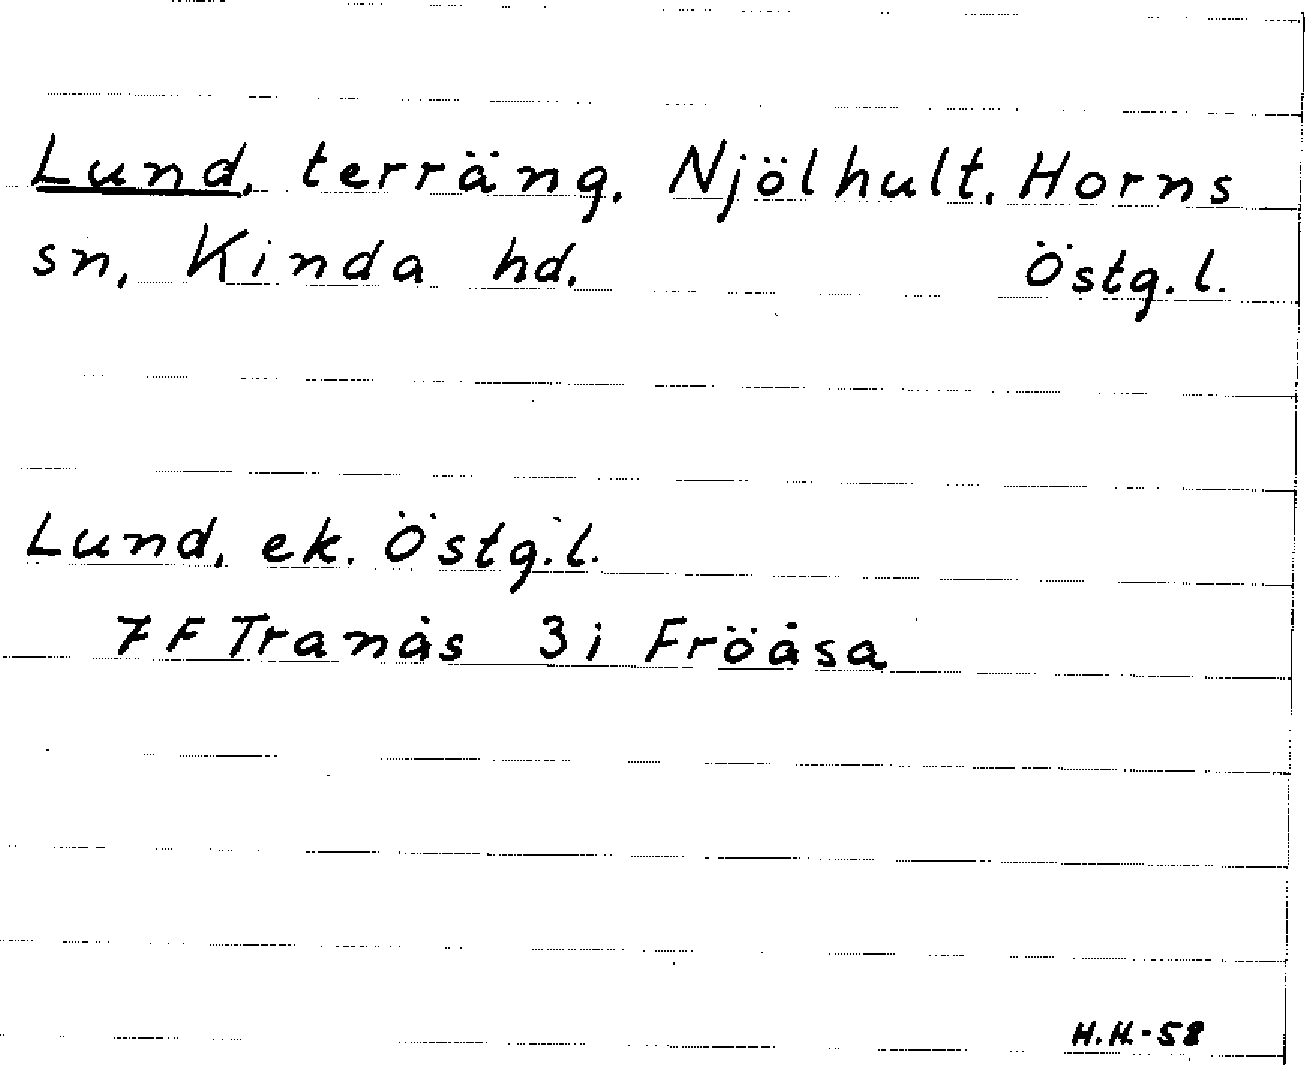 Lund, terräng, Njölhult, Horns
sn, Kinda hd. Östg.l.
Lund, ek. Östg.l.
7F Tranås 3i Fröåsa
H.H.-58